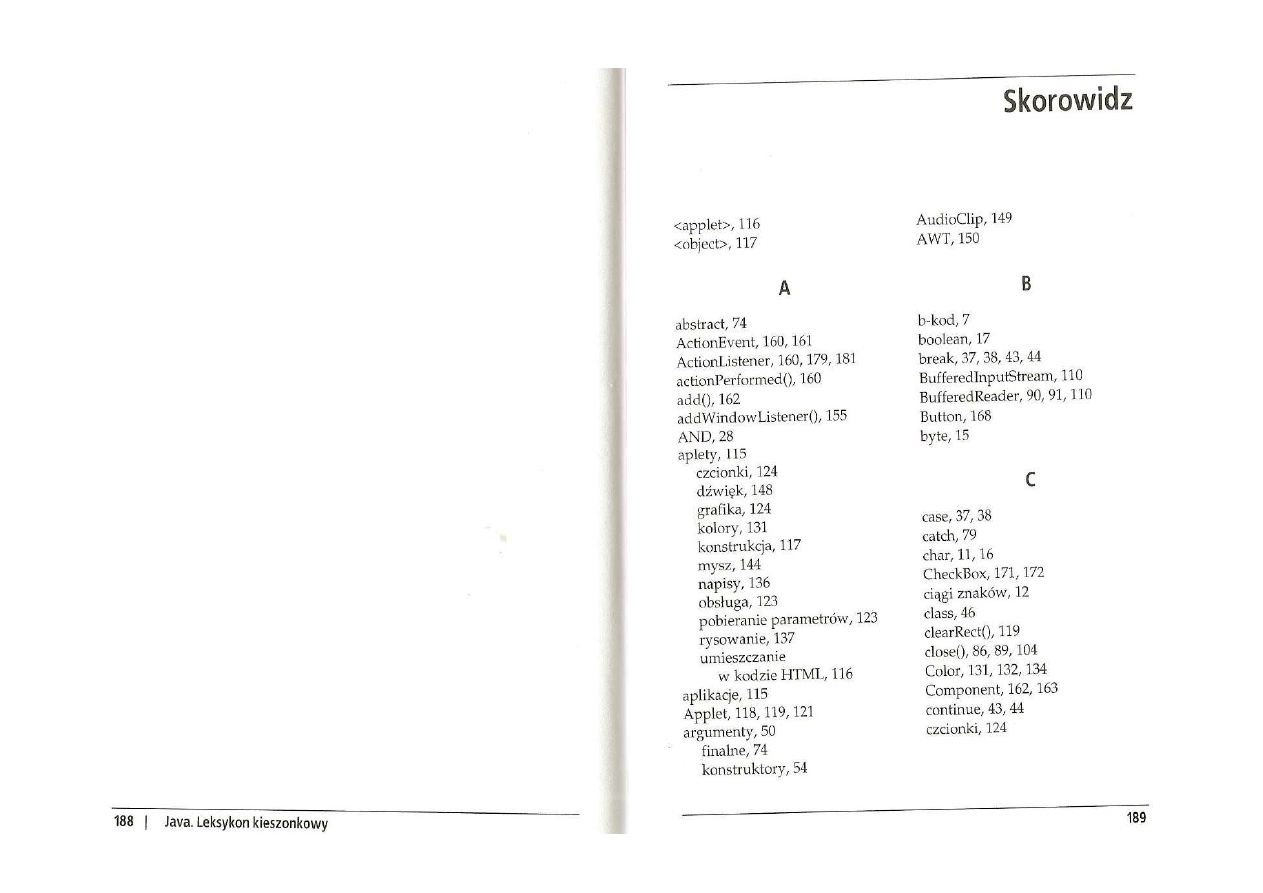 188 | Java. Leksykon kieszonkowy
Skorowidz
<applet>, 116
<object>, 117
A
abstract, 74
ActionEvent, 160, 161
ActionListener, 160, 179, 181
actionPerformed(), 160
add(), 162
addWindowListener(), 155
AND, 28
aplety, 115
czcionki, 124
dźwięk, 148
grafika, 124
kolory, 131
konstrukcja, 117
mysz, 144
napisy, 136
obsługa, 123
pobieranie parametrów, 123
rysowanie, 137
umieszczanie
w kodzie HTML, 116
aplikacje, 115
Applet, 118, 119, 121
argumenty, 50
finalne, 74
konstruktory, 54
AudioClip, 149
AWT, 150
B
b-kod, 7
boolean, 17
break, 37, 38, 43, 44
BufferedInputStream, 110
BufferedReader, 90, 91, 110
Button, 168
byte, 15
C
case, 37, 38
catch, 79
char, 11, 16
CheckBox, 171, 172
ciągi znaków, 12
class, 46
clearRect(), 119
close(), 86, 89, 104
Color, 131, 132, 134
Component, 162, 163
continue, 43, 44
czcionki, 124
189